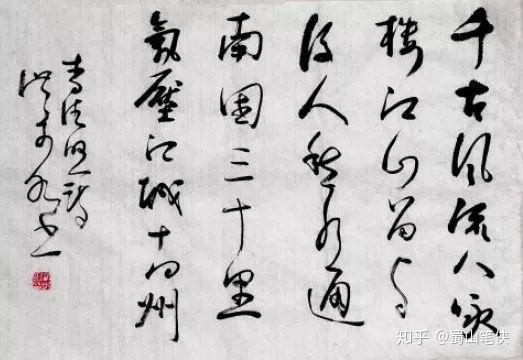 千古风流八咏
楼江山留与
后人愁水通
南国三十里
氣壓江城十四州
李清照诗
知乎 @蜀山笔侠